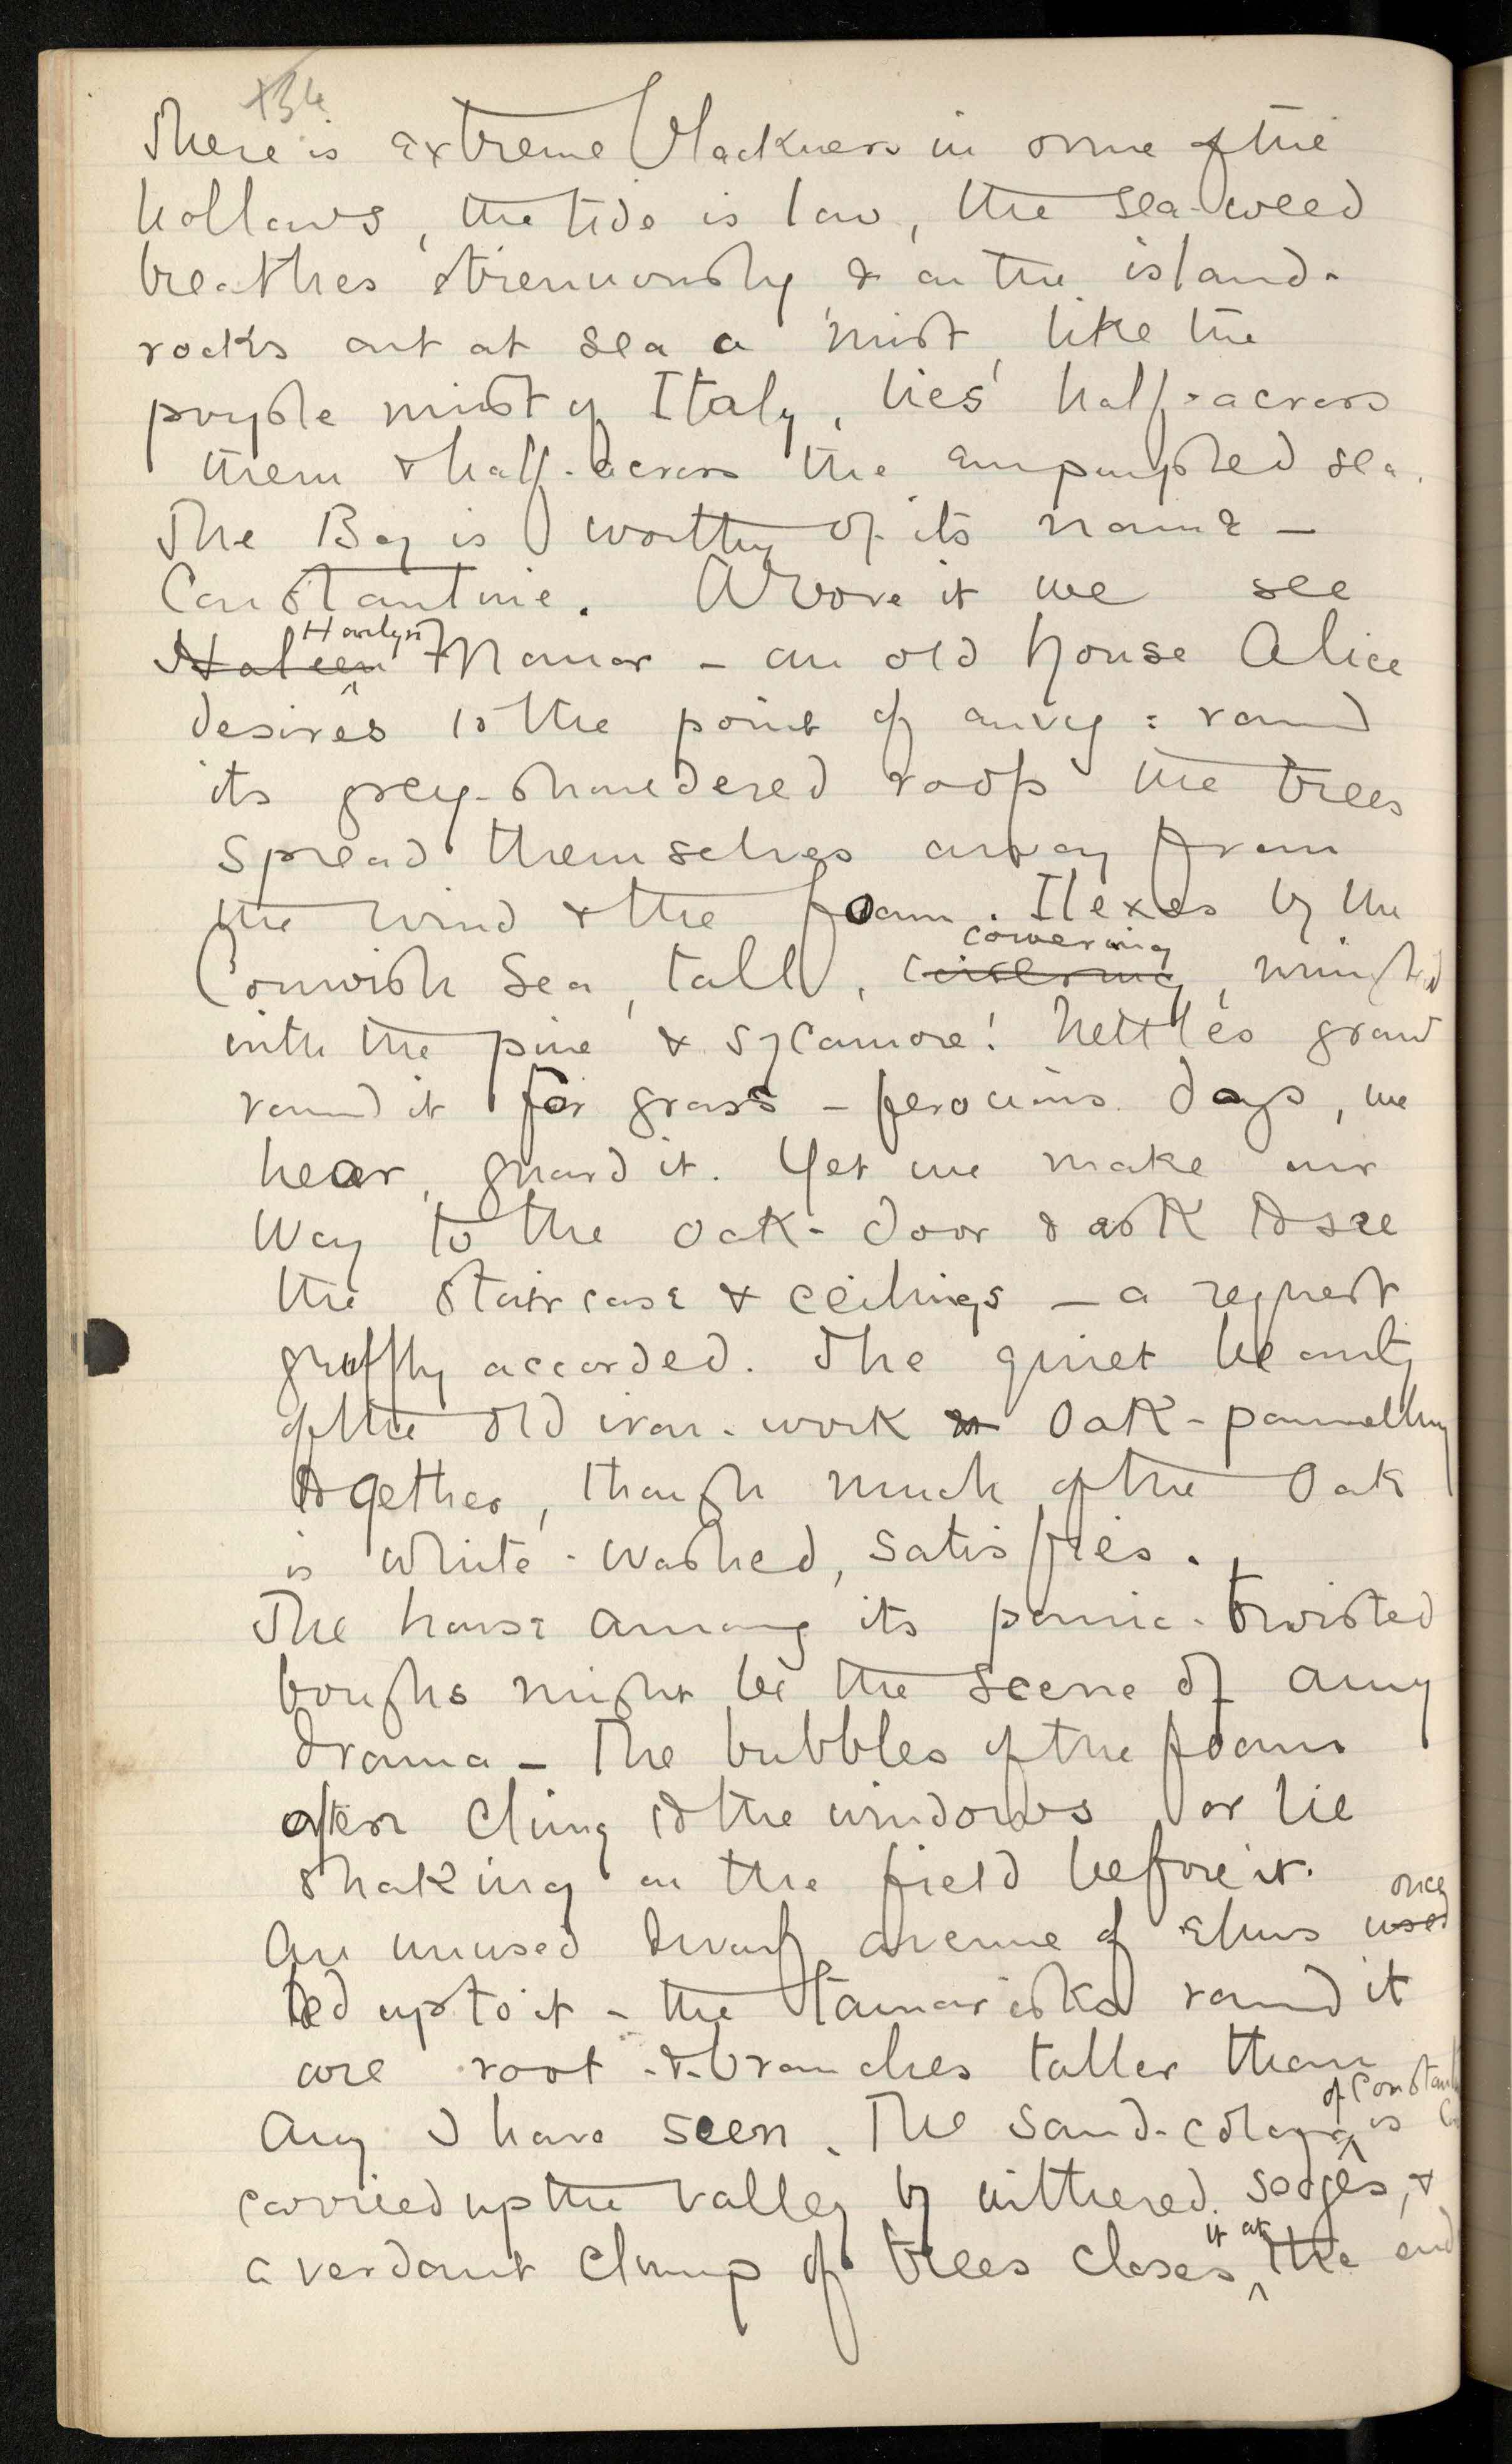 134
There is extreme blackness in some of the
hollows, the tide is low, the sea-weed
breathes strenuously & on the island-
rocks out at sea a mist, like the
purple mist of Italy, lies half-across
them & half-across the empurpled sea.
The Bay is worthy of its name –
Constantine. Above it we see
Harlyn
Manor – an old house Alice
desires to the point of envy: round
its grey-shouldered roofs the trees
spread themselves away from
the wind & the foam. Ilexes by the
cowering
Cornwish Sea, tall, , mingled
with the pine & sycamore! Nettles grow
round it for grass – ferocious dogs, we
hear, guard it. Yet we make our
way to the oak-door & ask to see
the staircase & ceilings – a request
gruffly accorded. The quiet beauty
of the old iron-work & oak-pannelling
together, though much of the oak
is white-washed, satisfies.
The house among its panic-twisted
boughs might be the scene of any
drama – The bubbles of the foam
often cling to the windows or lie
shaking on the field before it.
once
An unused dwarf avenue of elms used
led up to it – the tamarisks round it
are root-&-branches taller than
of Constantine
any I have seen. The sand-colour is
carried up the valley by withered sedges, &
it at
a verdant clump of trees closes the end